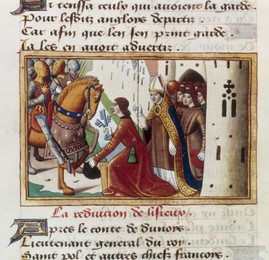 Et laissa ceulx qui avoient la garde.
Pour lesditz anglois departir
Car afin que l'en sen print garde.
La les en avoit advertiz.
La reduction de lisieux.
Apres le conte de dunois.
Lieutenant general du roy.
Saint pol et autres chiefz francois.